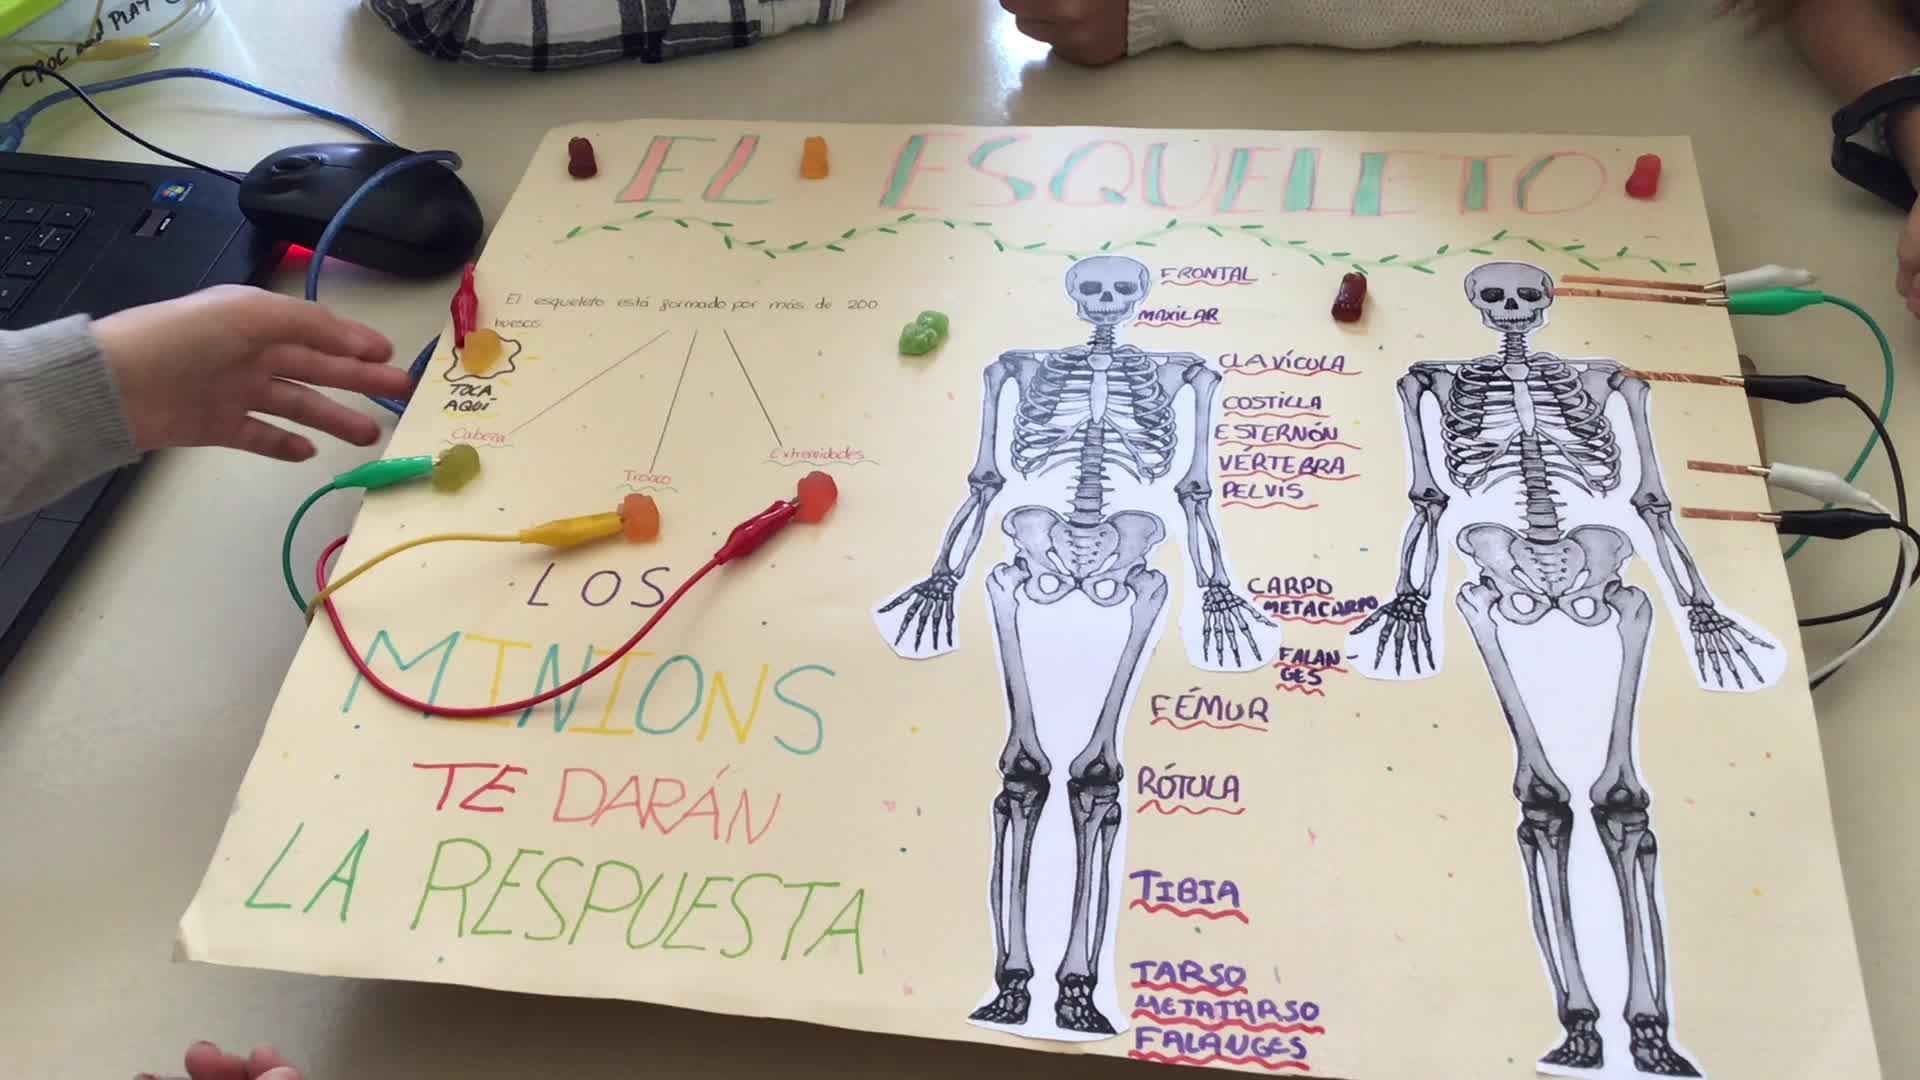 CROC and PLAY
EL ESQUELETO
El esqueleto está formado por más de 200
huesos
TOCA
AQUÍ
Cabeza
Tronco
Extremidades
LOS
MINIONS
TE DARÁN
LA RESPUESTA
FRONTAL
MAXILAR
CLAVÍCULA
COSTILLA
ESTERNÓN
VÉRTEBRA
PELVIS
CARPO
METACARPO
FALAN-
GES
FÉMUR
RÓTULA
TIBIA
TARSO
METATARSO
FALANGES